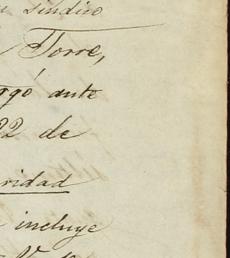 sindico
Torre,
ggó ante
22 de
ridad
incluye